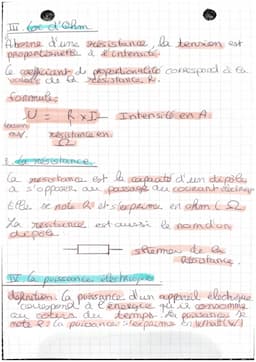 III. Loi d'Ohm
A borne d'une résistance, la tension est
proportionnelle à l'intensité.
Le coefficient de proportionnalité correspond à la
valeur de la résistance R.
formule:
U = R x I Intensité en A
tension
en V. résistance en
Ω
la résistance
La résistance est la capacité d'un dipôle
a s'opposer au passage du courant électrique
Elle se note R et s'exprime en ohm (Ω
La résistance est aussi le nom d'un
dipôle
schéma de la
Résistance.
IV La puissance électrique
définition: La puissance d'un appareil électrique
correspond à l'énergie qu'il consomme
au cours du temps. La puissance se
note P. La puissance s'exprime en Watt (W)